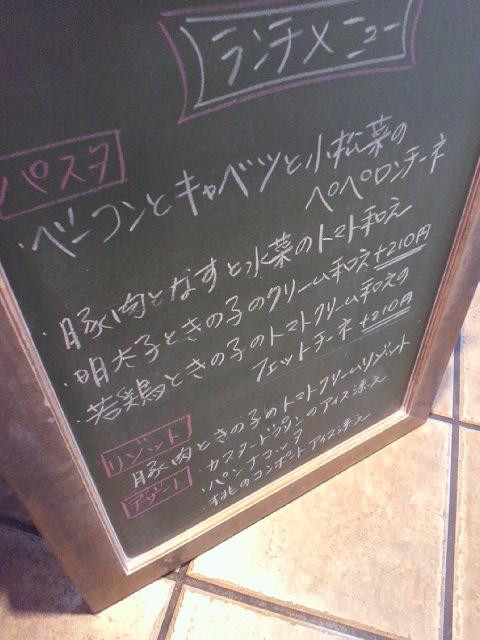 ランチメニュー
パスタ
・ベーコンとキャベツと小松菜の
ペペロンチーネ
・豚肉となすと水菜のトマト和え
・明太子ときの子のクリーム和え+210円
・若鶏ときの子のトマトクリーム和えの
フェットチーネ +210円
リゾット
豚肉ときの子のトマトクリームリゾット
デザート
・カスタードプリンのアイス添え
・パンナコッタ
・桃のコンポートアイス添え